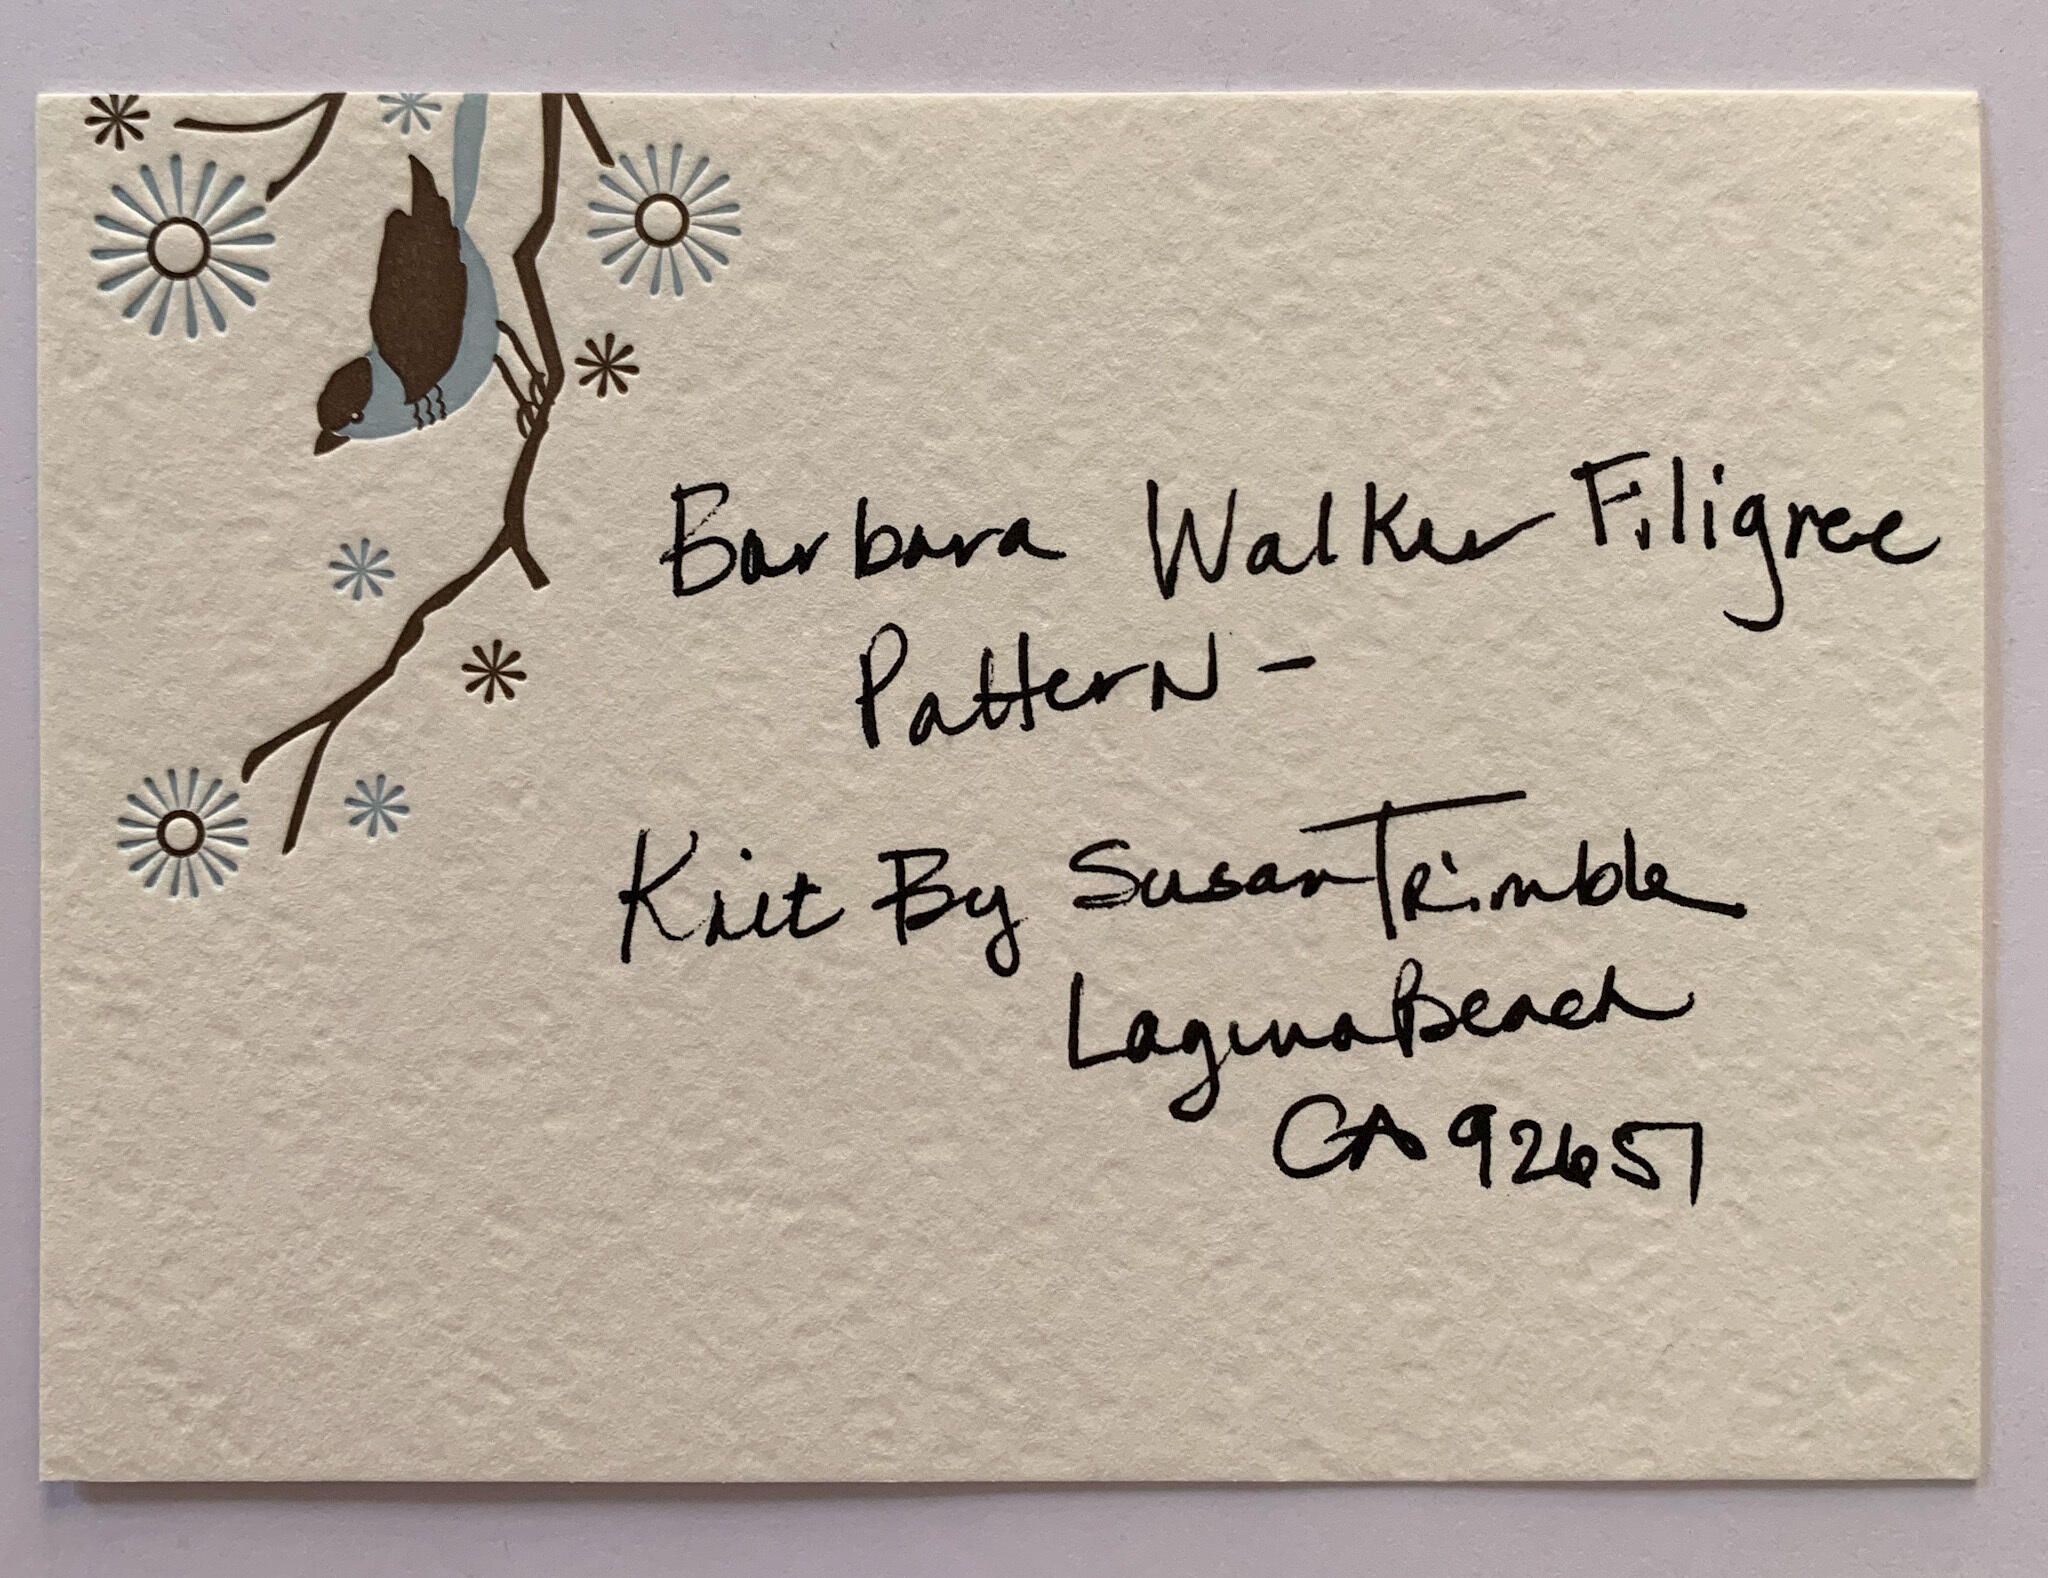 Barbara Walker Filigree
Pattern -
Knit By Susan Trimble
Laguna Beach
CA 92651